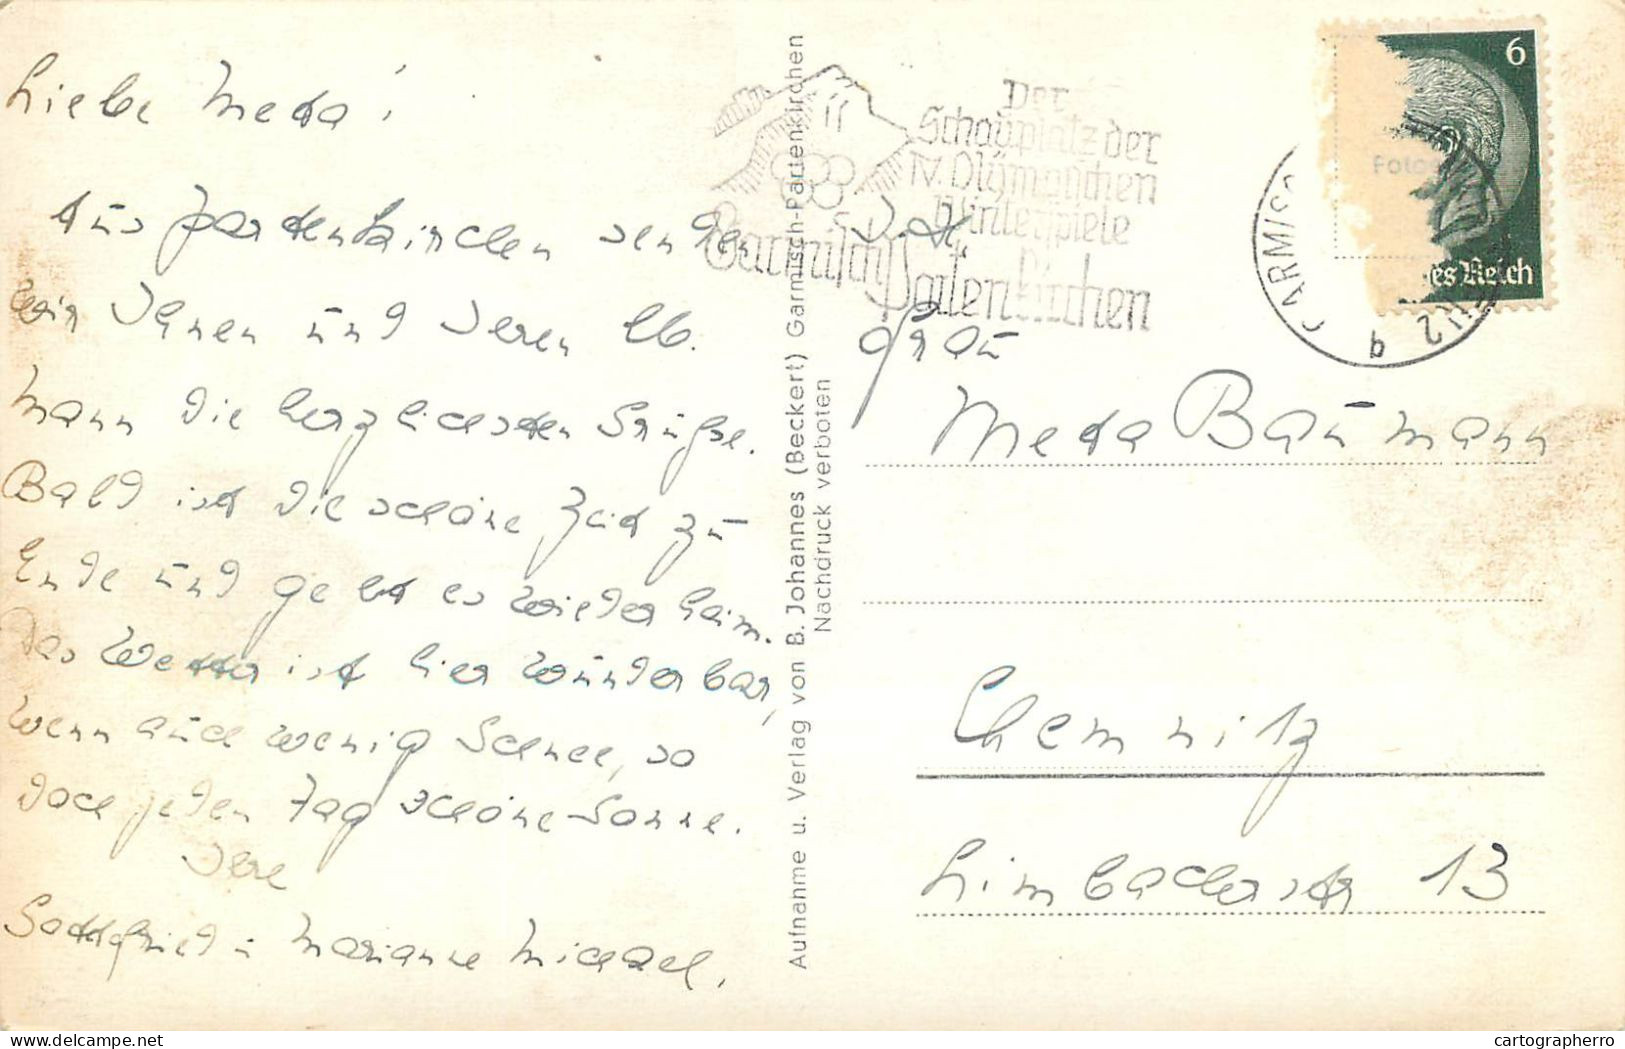 Liebe Meta!
Aus Partenkirchen senden
wir Ihnen und Ihren lb.
Mann die herzlichsten Grüße.
Bald ist die schöne Zeit zu
Ende und geht es wieder heim.
Das Wetter ist hier wunderbar,
wenn auch wenig Schnee, so
doch jeden Tag schöne Sonne.
Ihre
Gottfried u Marianne Michael.
Aufnahme u. Verlag von B. Johannes (Beckert) Garmisch-Partenkirchen
Nachdruck verboten
Der
Schauplatz der
IV. Olympischen
Winterspiele
Garmisch Partenkirchen
6
es Reich
GARMISC
Frau
Meta Baumann
Chemnitz
Limbacherstr 13
cartes-postales.delcampe.net
cartographerro